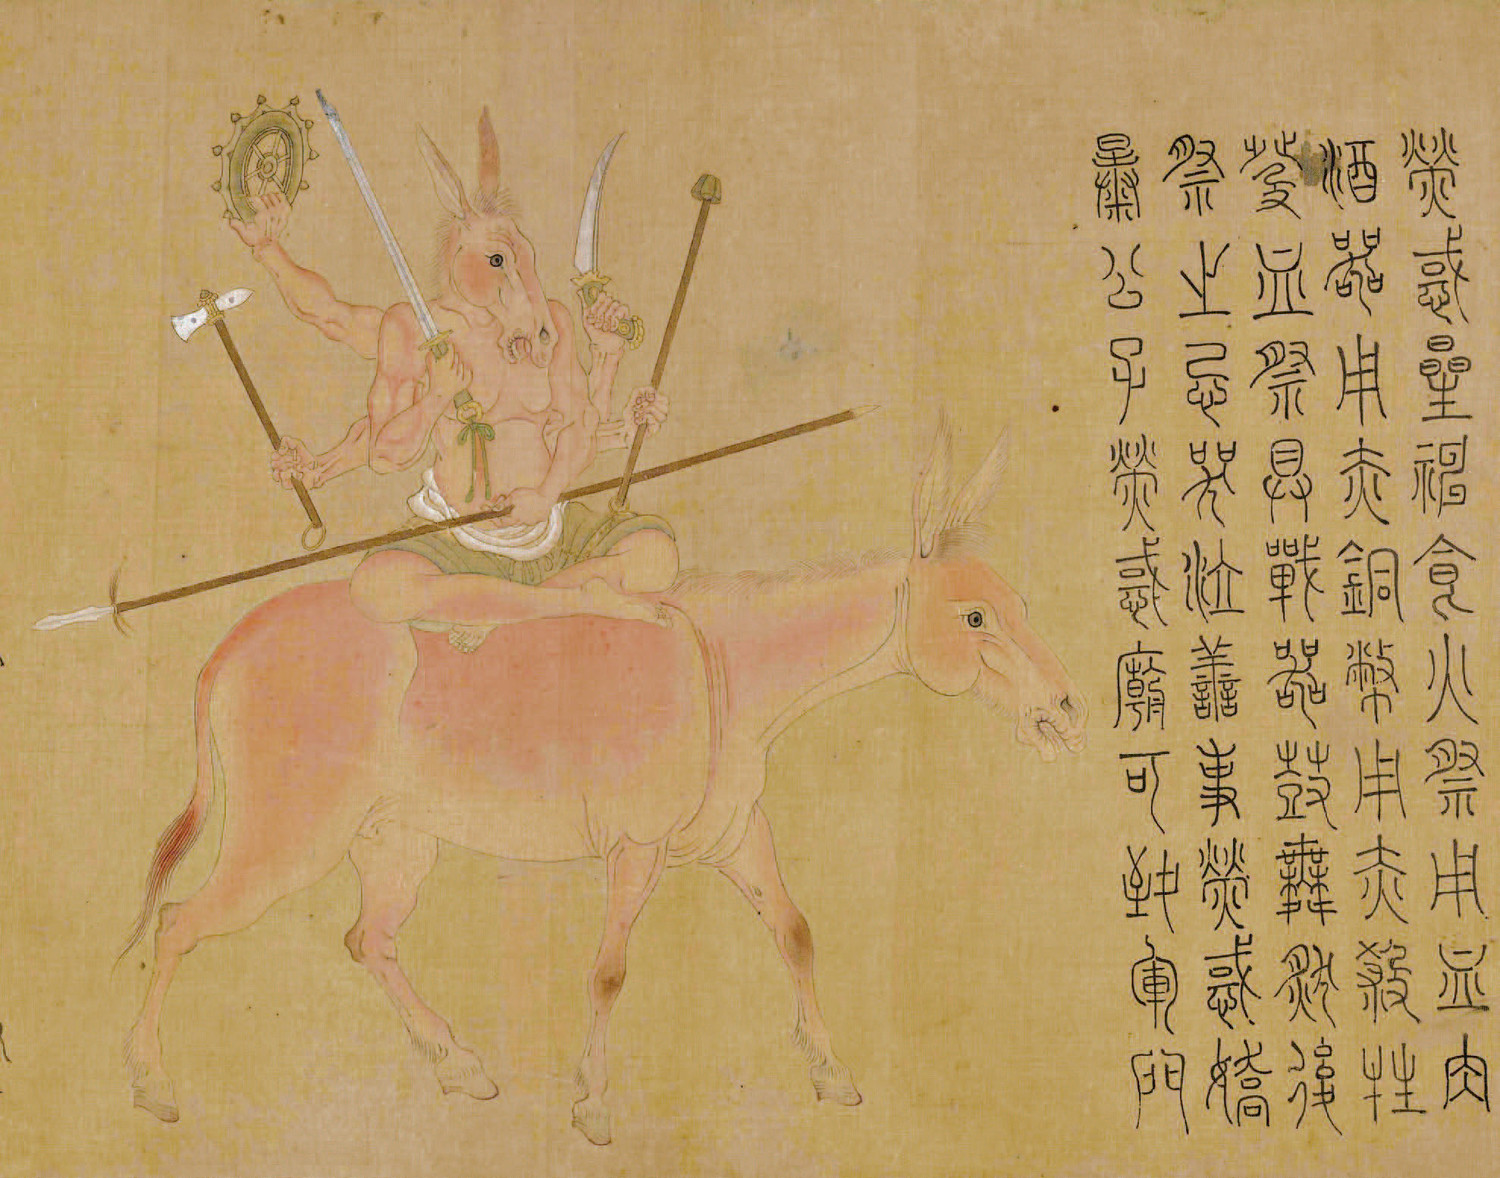 熒惑星神食火祭用血肉
酒器用赤銅幣用赤殺牲
血祭具戰器鼓舞然後
祭之忌哭泣善事熒惑嬌
暴公子熒惑廟可軍門